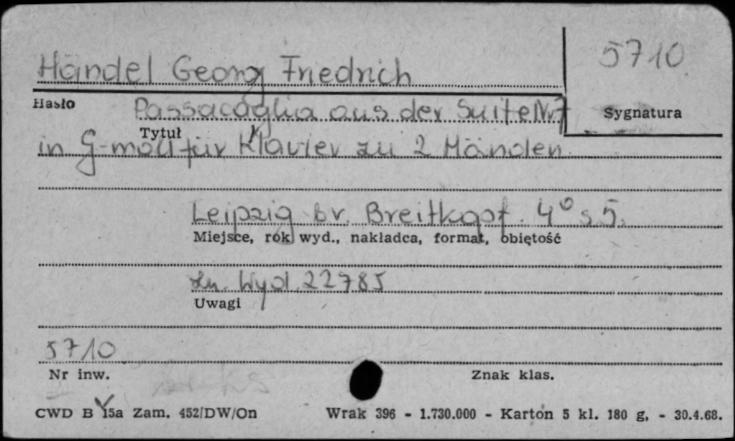 5710
Händel Georg Friedrich
Hasło
Passacaglia aus der Suite Nr 7
Sygnatura
Tytuł
in G-moll für Klavier zu 2 Händen
Leipzig br. Breitkopf. 4° s 5.
Miejsce, rok wyd., nakładca, format, objętość
zn. Wyd. 22785
Uwagi
5710
Nr inw.
Znak klas.
CWD B 15a Zam. 452/DW/On Wrak 396 - 1.730.000 - Karton 5 kl. 180 g, - 30.4.68.